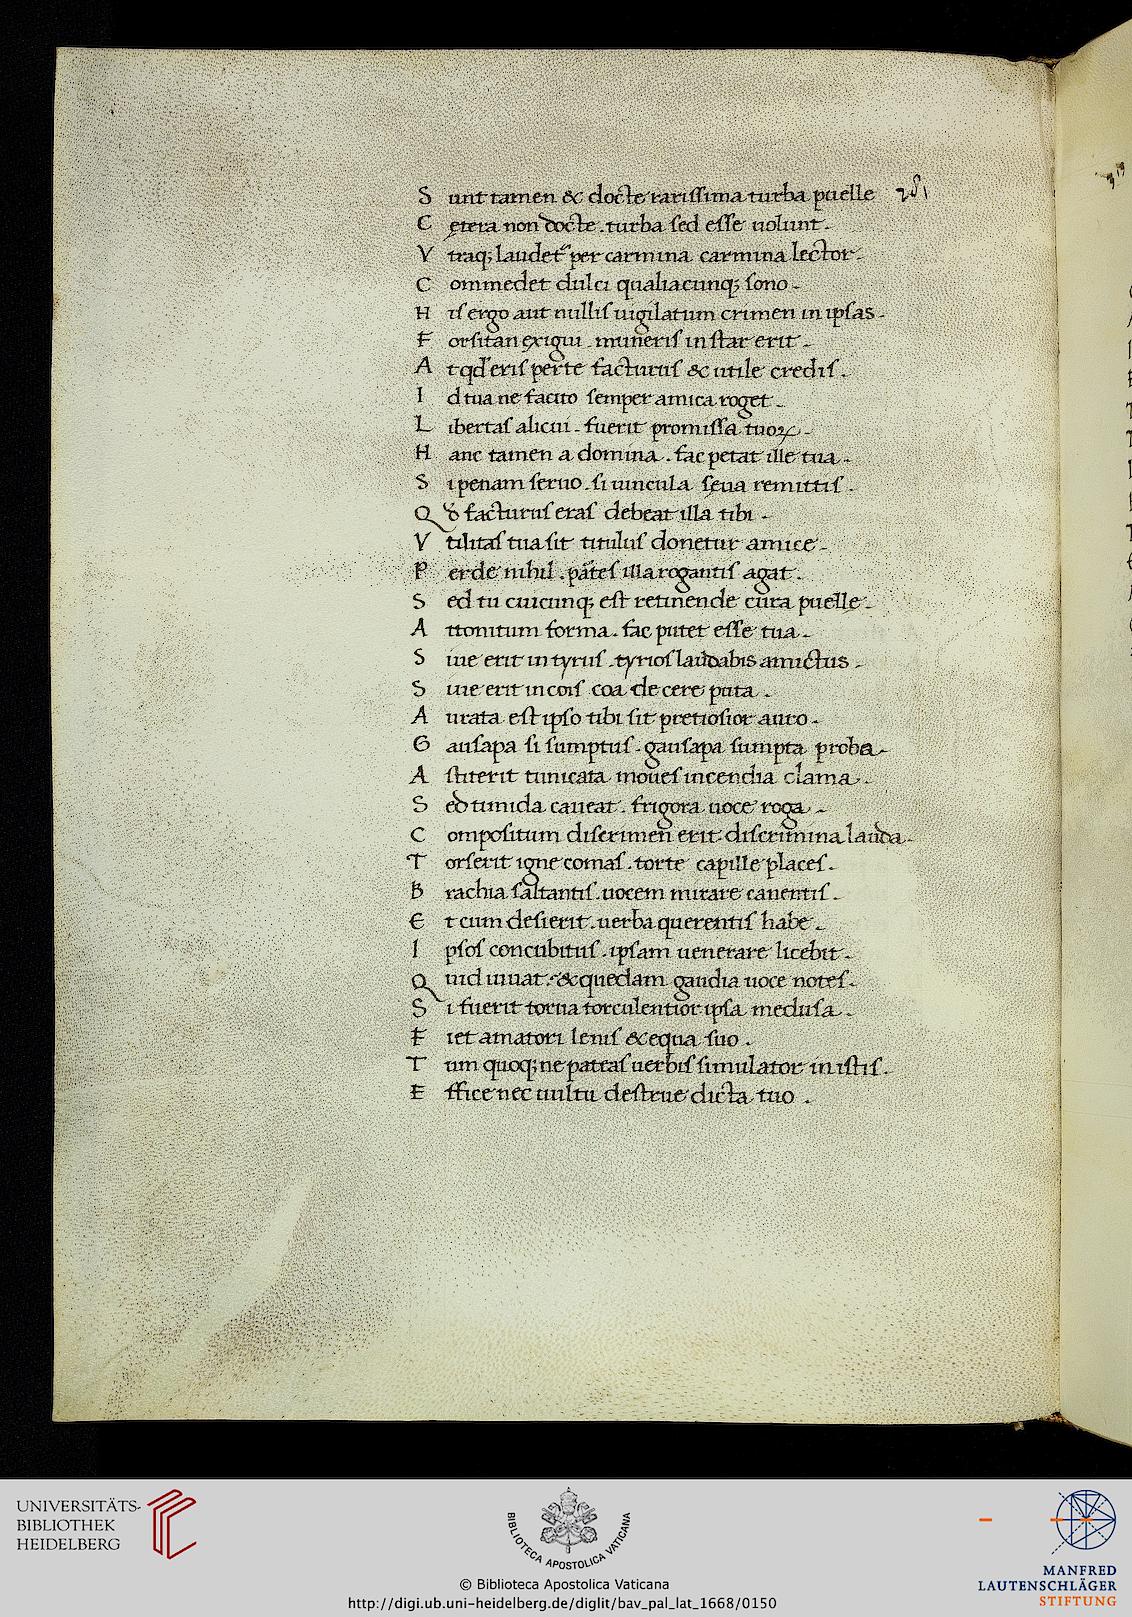 Sunt tamen & docte rarissima turba puelle 281
Cetera non docte . turba sed esse uolunt .
Vtraq; laudet᷑ per carmina carmina lector .
Commedet dulci qualiacunq; sono .
His ergo aut nullis uigilatum crimen in ipsas .
Forsitan exigui muneris instar erit .
At qđ eris per te facturus & utile credis .
Id tua ne facito semper amica roget .
Libertas alicui . fuerit promissa tuoꝝ .
Hanc tamen a domina . fac petat ille tua .
Si penam seruo . si uincula seua remittis .
Qđ facturus eras debeat illa tibi .
Vtilitas tua sit titulus donetur amice .
Perde nihil . partes illa rogantis agat .
Sed tu cuicunq; est retinende cura puelle .
Attonitum forma . fac putet esse tua .
Siue erit in tyrus . tyrios laudabis amictus .
Siue erit in cois coa decere puta .
Aurata est ipso tibi sit pretiosior auro .
Gausapa si sumptus . gausapa sumpta proba .
Astiterit tunicata moues incendia clama .
Sed timida caueat . frigora uoce roga .
Compositum discrimen erit . discrimina lauda .
Torserit igne comas . torte capille places .
Brachia saltantis . uocem mirare canentis .
Et cum desierit . uerba querentis habe .
Ipsos concubitus . ipsam uenerare licebit .
Quid iuuat . & quedam gaudia uoce notes .
Si fuerit torua torculentior ipsa medusa .
Fiet amatori lenis & equa suo .
Tum quoq; ne pateas uerbis simulator in istis .
Effice nec uultu destrue dicta tuo .
UNIVERSITÄTS-
BIBLIOTHEK
HEIDELBERG
BIBLIOTECA APOSTOLICA VATICANA
MANFRED
LAUTENSCHLÄGER
STIFTUNG
© Biblioteca Apostolica Vaticana
http://digi.ub.uni-heidelberg.de/diglit/bav_pal_lat_1668/0150